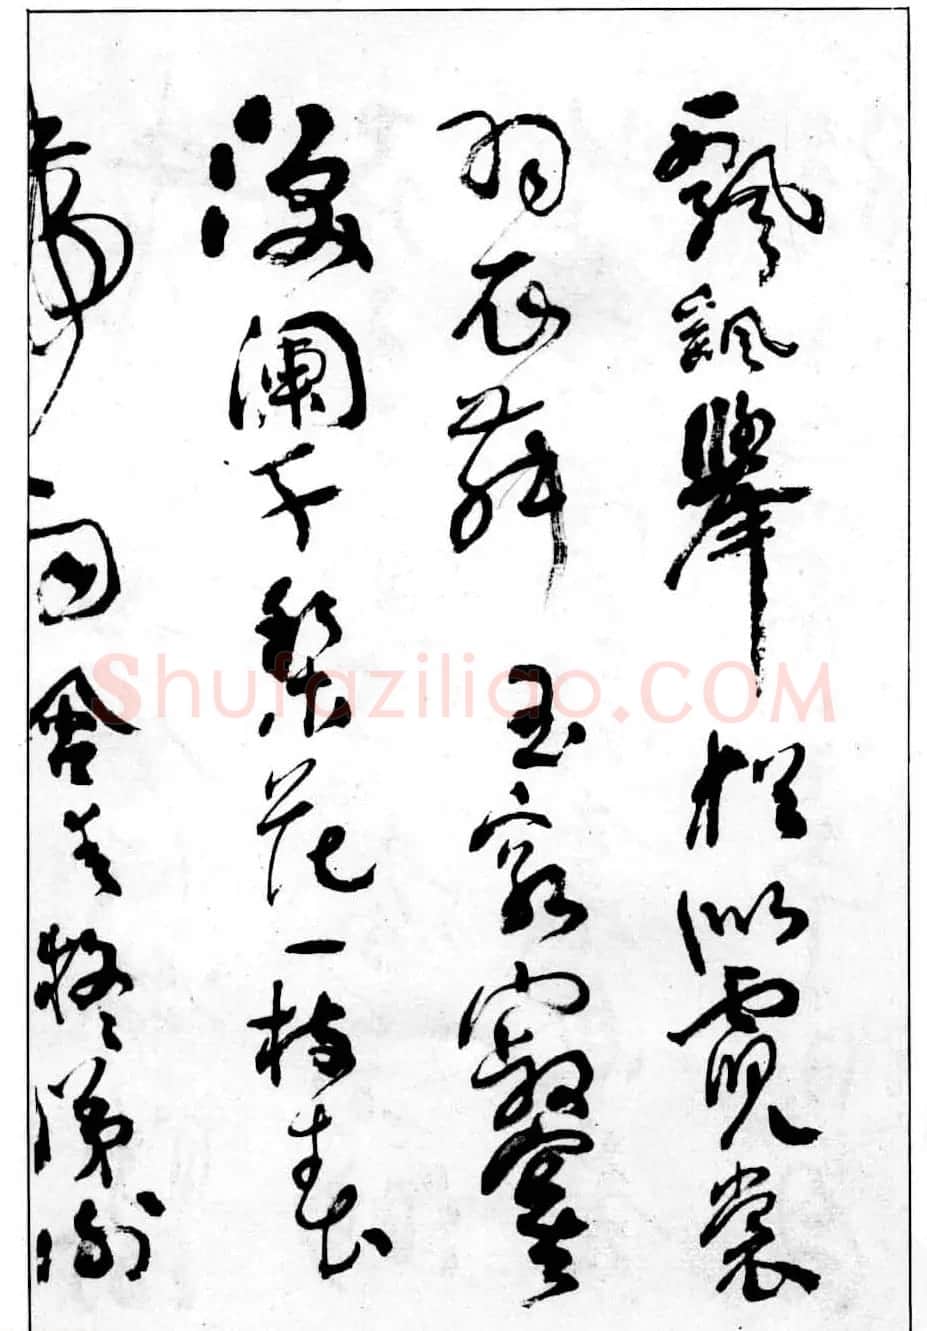 飄颻舉猶似霓裳
羽衣舞玉容寂寞
淚闌干梨花一枝春
帶雨含情凝睇謝
Shufaziliao.COM